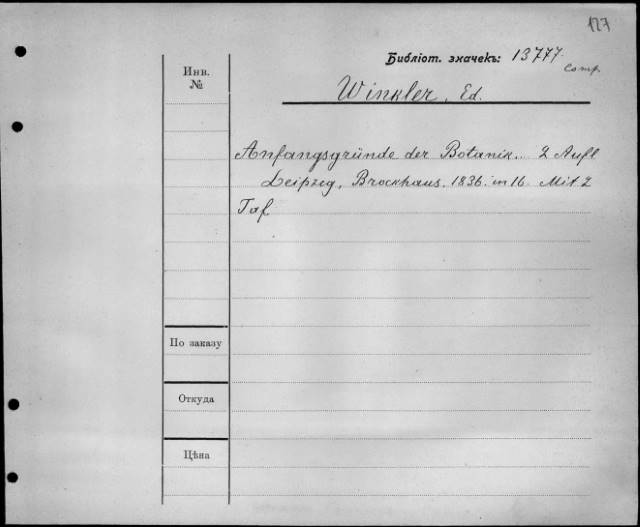 127
Библіот. значекъ: 13777.
Comp.
Инв.
№
Winkler, Ed.
Anfangsgründe der Botanik... 2 Aufl
Leipzig, Brockhaus. 1836. in 16. Mit 2
Taf
По заказу
Откуда
Цѣна